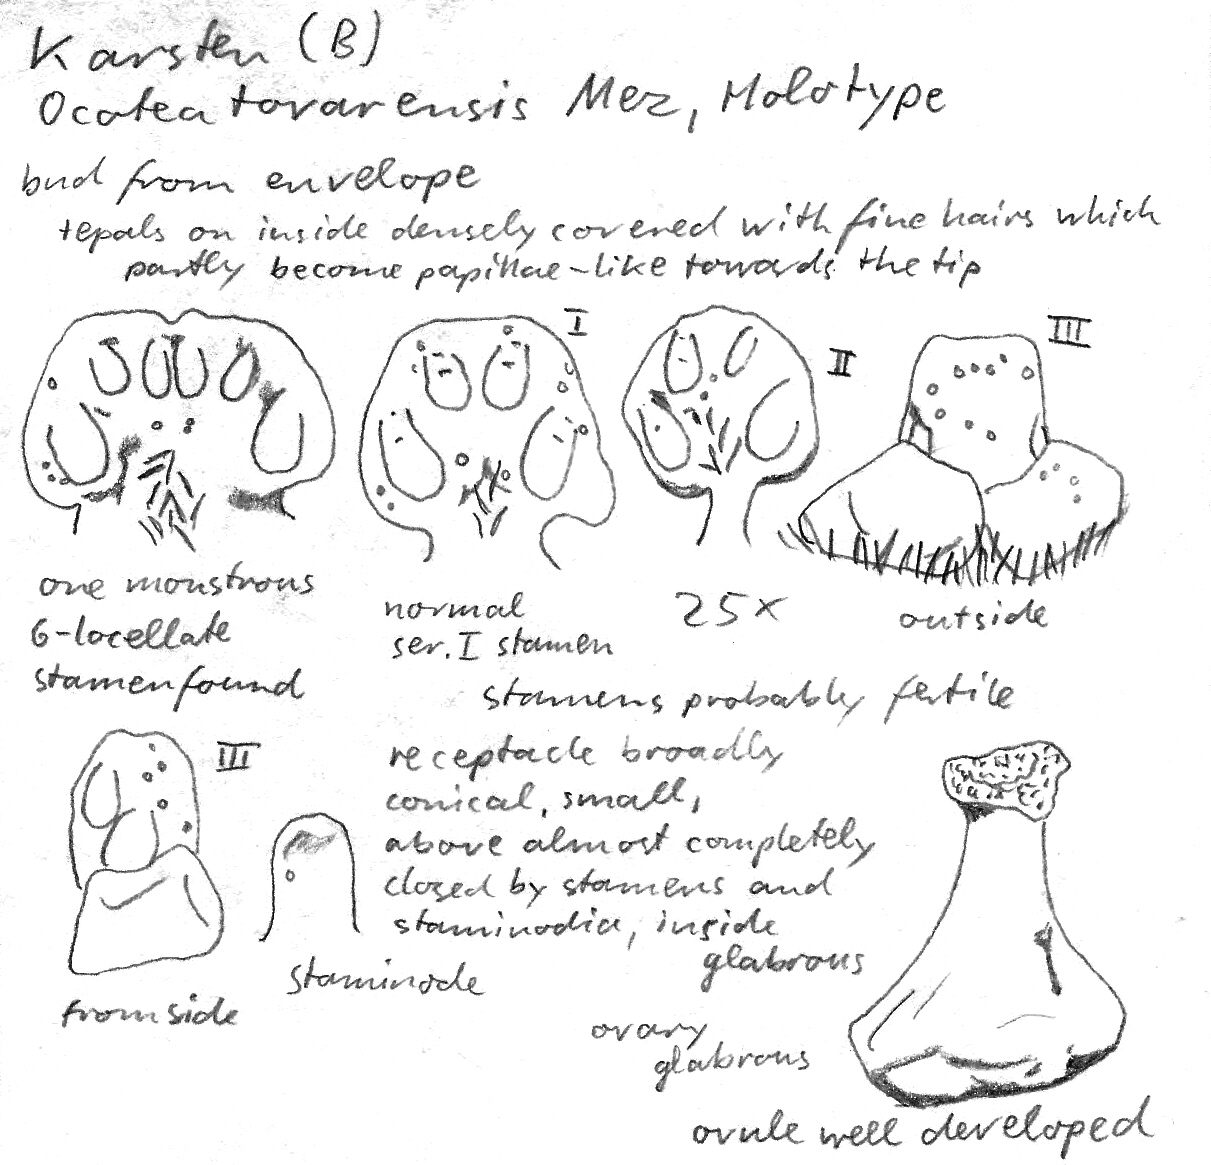 Karsten (B)
Ocotea tovarensis Mez, Holotype
bud from envelope
tepals on inside densely covered with fine hairs which
partly become papillae-like towards the tip
I
II
III
one monstrous
6-locellate
stamen found
normal
ser. I stamen
25x
outside
stamens probably fertile
III
receptacle broadly
conical, small,
above almost completely
closed by stamens and
staminodia, inside
glabrous
staminode
from side
ovary
glabrous
ovule well developed